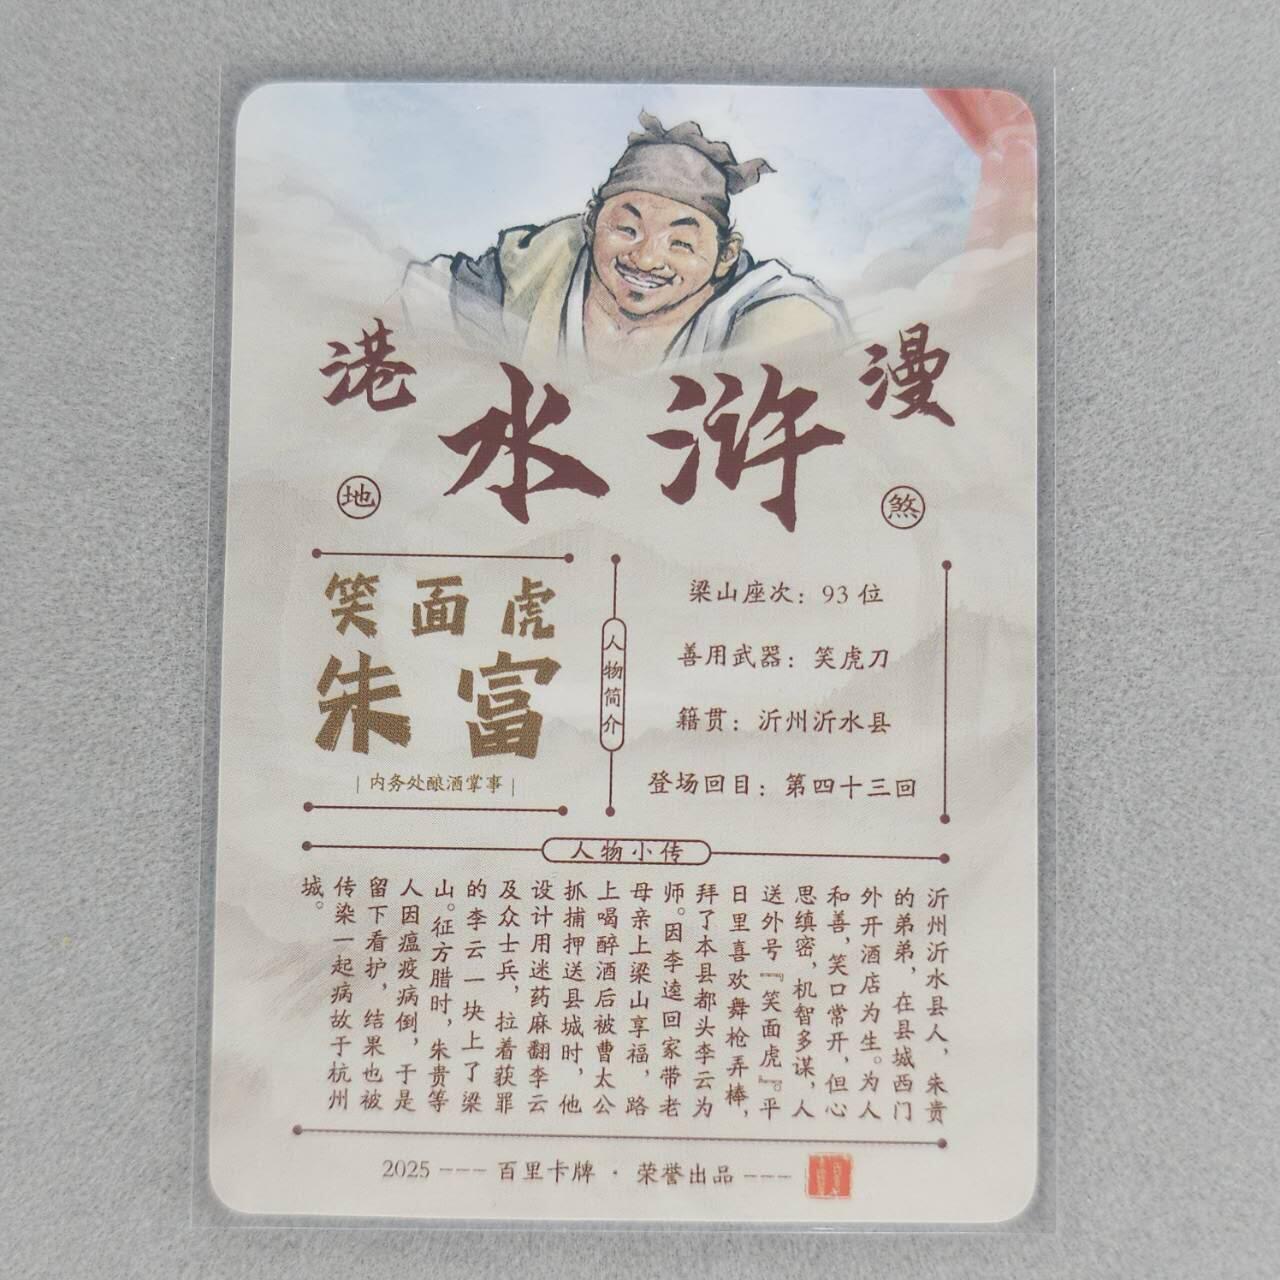 港
水浒
漫
地
煞
笑面虎
朱富
内务处酿酒掌事
人物简介
梁山座次：93位
善用武器：笑虎刀
籍贯：沂州沂水县
登场回目：第四十三回
人物小传
沂州沂水县人，朱贵
的弟弟，在县城西门
外开酒店为生。为人
和善，笑口常开，但心
思缜密，机智多谋，人
送外号『笑面虎』。平
日里喜欢舞枪弄棒，
拜了本县都头李云为
师。因李逵回家带老
母亲上梁山享福，路
上喝醉酒后被曹太公
抓捕押送县城时，他
设计用迷药麻翻李云
及众士兵，拉着获罪
的李云一块上了梁
山。征方腊时，朱贵等
人因瘟疫病倒，于是
留下看护，结果也被
传染一起病故于杭州
城。
2025 --- 百里卡牌 · 荣誉出品 ---